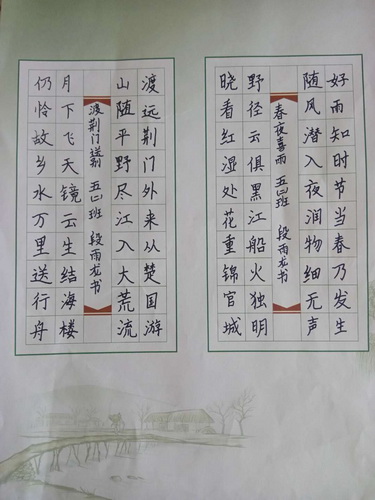 好雨知时节当春乃发生
随风潜入夜润物细无声
春夜喜雨 五班 段雨龙书
野径云俱黑江船火独明
晓看红湿处花重锦官城
渡远荆门外来从楚国游
山随平野尽江入大荒流
渡荆门送别 五班 段雨龙书
月下飞天镜云生结海楼
仍怜故乡水万里送行舟